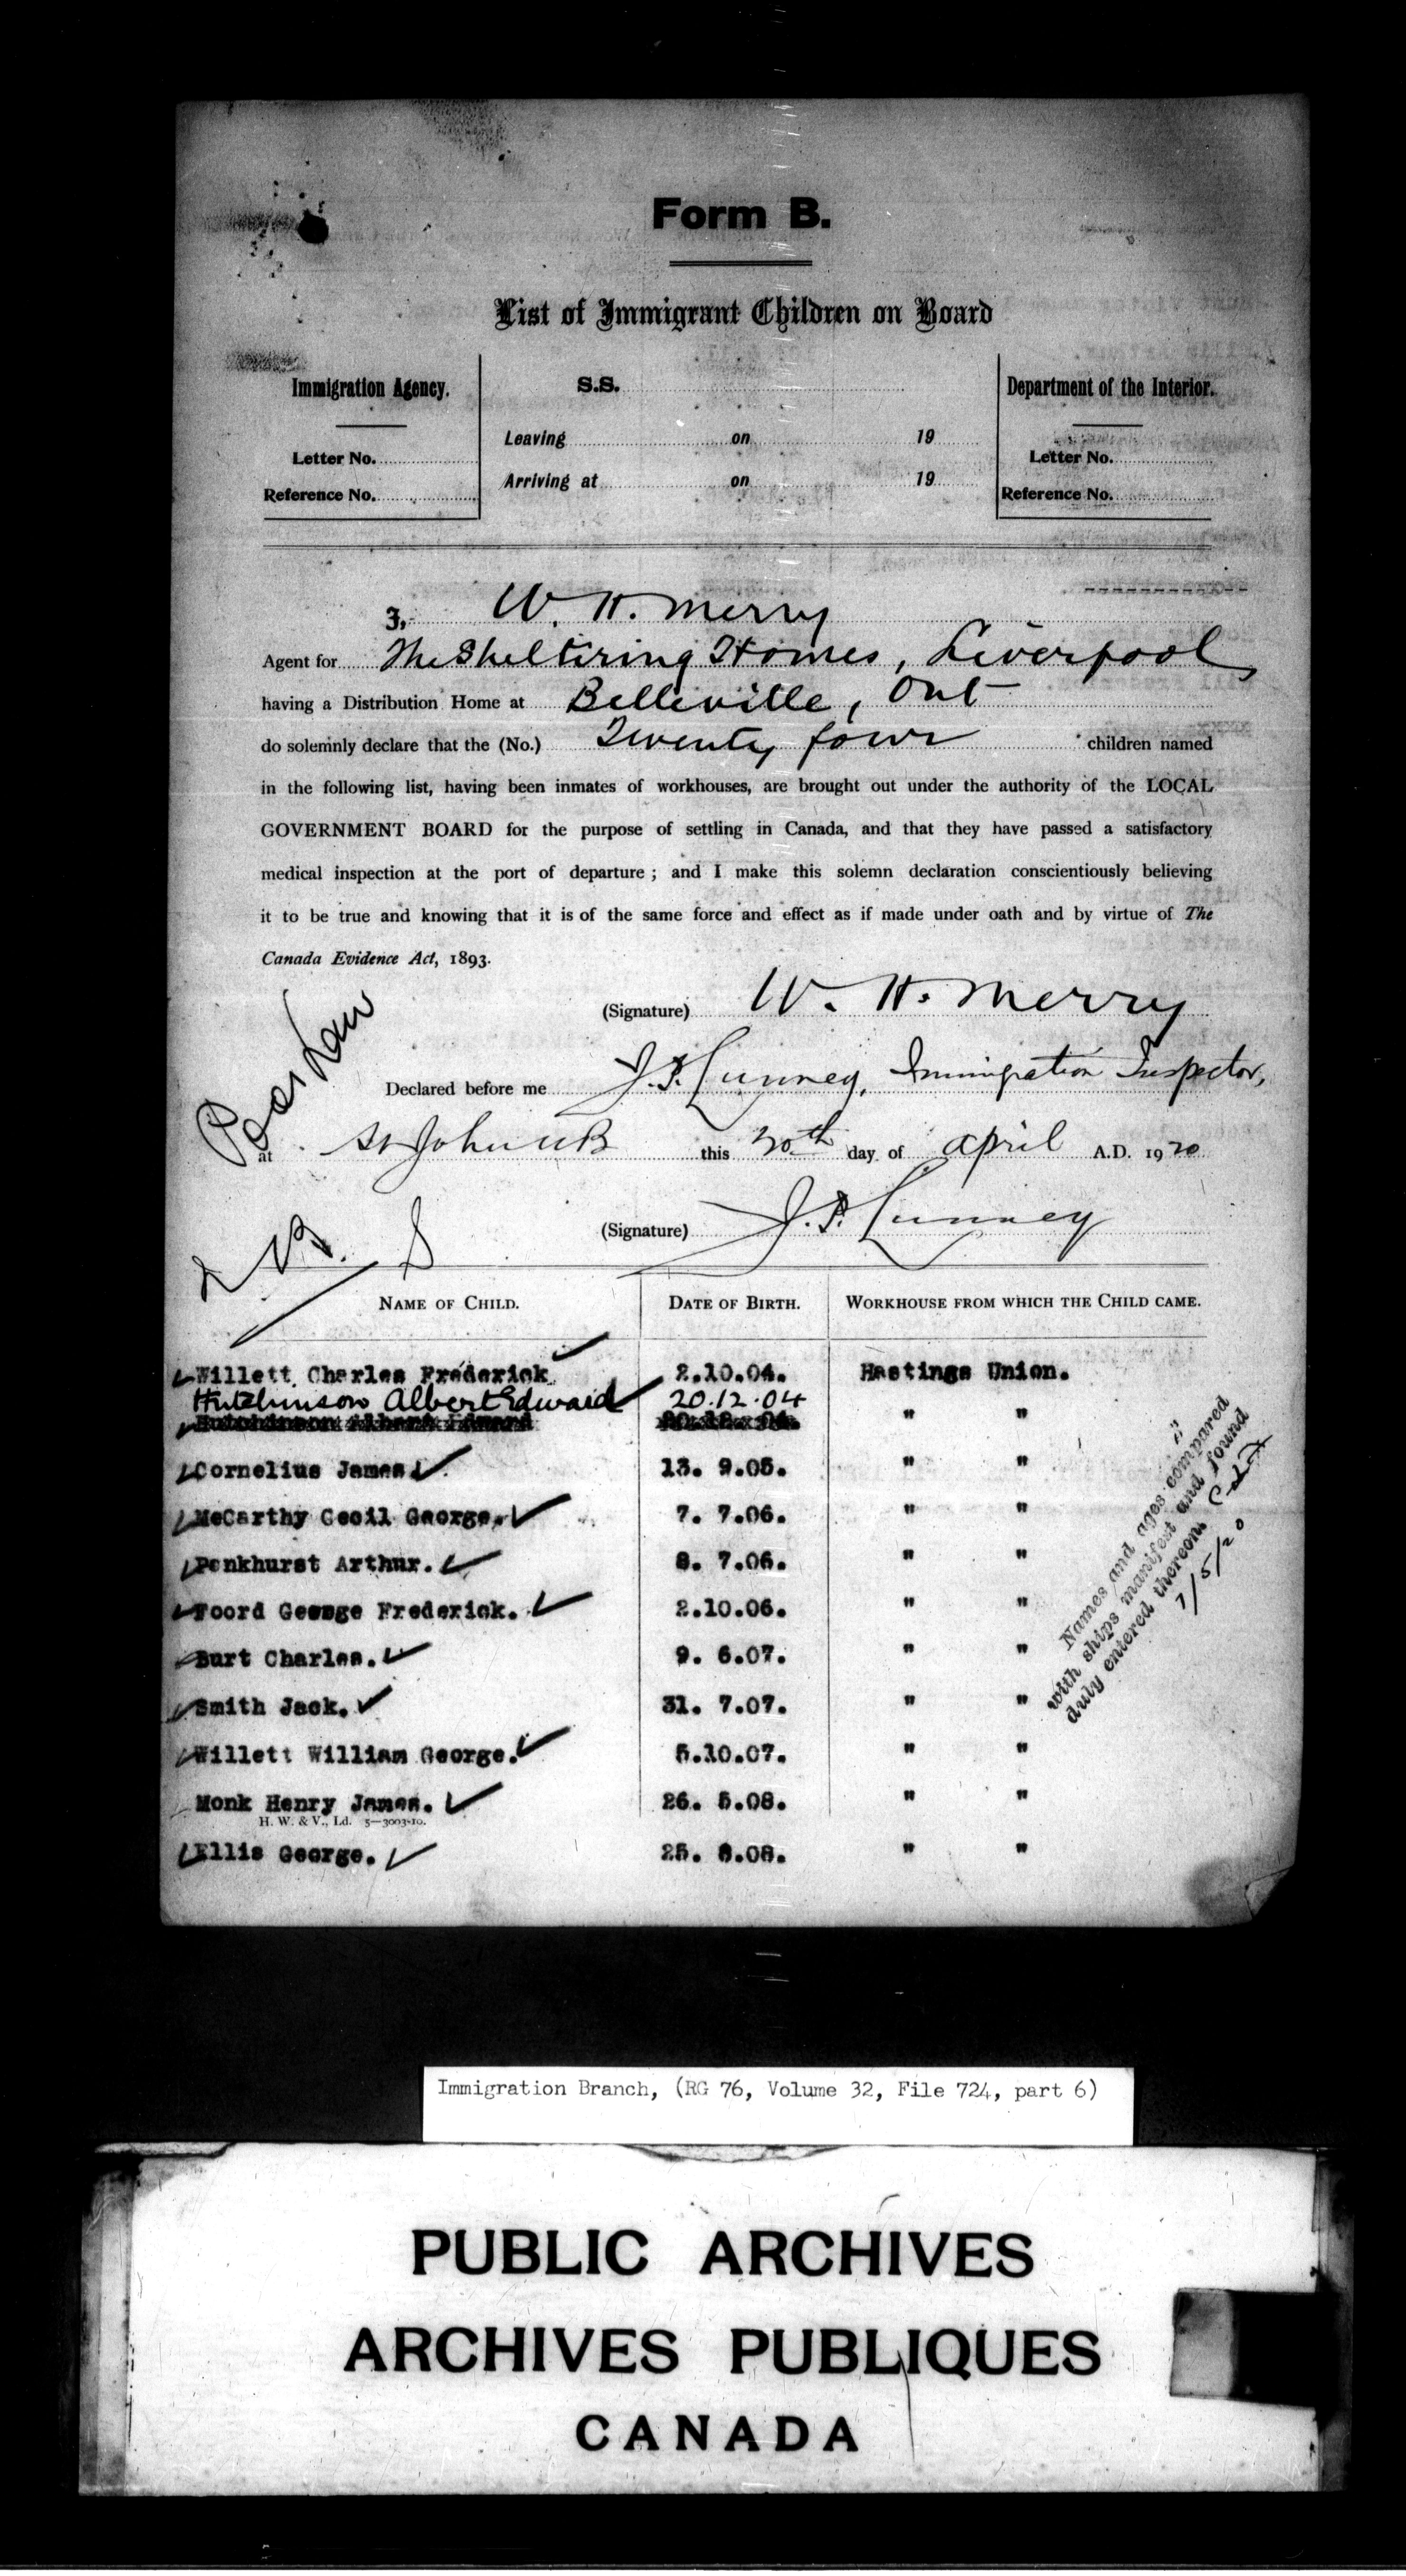 Form B.
List of Immigrant Children on Board
Immigration Agency.
Letter No.
Reference No.
S.S.
Leaving on 19
Arriving at on 19
Department of the Interior.
Letter No.
Reference No.
I, W. H. Merry
Agent for The Sheltering Homes, Liverpool
having a Distribution Home at Belleville, Ont
do solemnly declare that the (No.) Twenty four children named
in the following list, having been inmates of workhouses, are brought out under the authority of the LOCAL
GOVERNMENT BOARD for the purpose of settling in Canada, and that they have passed a satisfactory
medical inspection at the port of departure; and I make this solemn declaration conscientiously believing
it to be true and knowing that it is of the same force and effect as if made under oath and by virtue of The
Canada Evidence Act, 1893.
(Signature) W. H. Merry
Poor Law
Declared before me J.P. Lunney, Immigration Inspector,
at St John NB this 20th day of April A.D. 1920
(Signature) J.P. Lunney
NAME OF CHILD. DATE OF BIRTH. WORKHOUSE FROM WHICH THE CHILD CAME.
Willett Charles Frederick 2.10.04. Hastings Union.
Hutchinson Albert Edward 20.12.04
Hutchinson Albert Edward " "
Cornelius James 13. 9.05. " "
McCarthy Cecil George. 7. 7.06. " "
Penkhurst Arthur. 8. 7.06. " "
Foord George Frederick. 2.10.06. " "
Burt Charles. 9. 6.07. " "
Smith Jack. 31. 7.07. " "
Willett William George. 5.10.07. " "
Monk Henry James. 26. 5.08. " "
H. W. & V., Ld. 5—3003-10.
Ellis George. 25. 8.08. " "
Names and ages compared
with ships manifest and found
duly entered thereon.
7/5/20
Immigration Branch, (RG 76, Volume 32, File 724, part 6)
PUBLIC ARCHIVES
ARCHIVES PUBLIQUES
CANADA